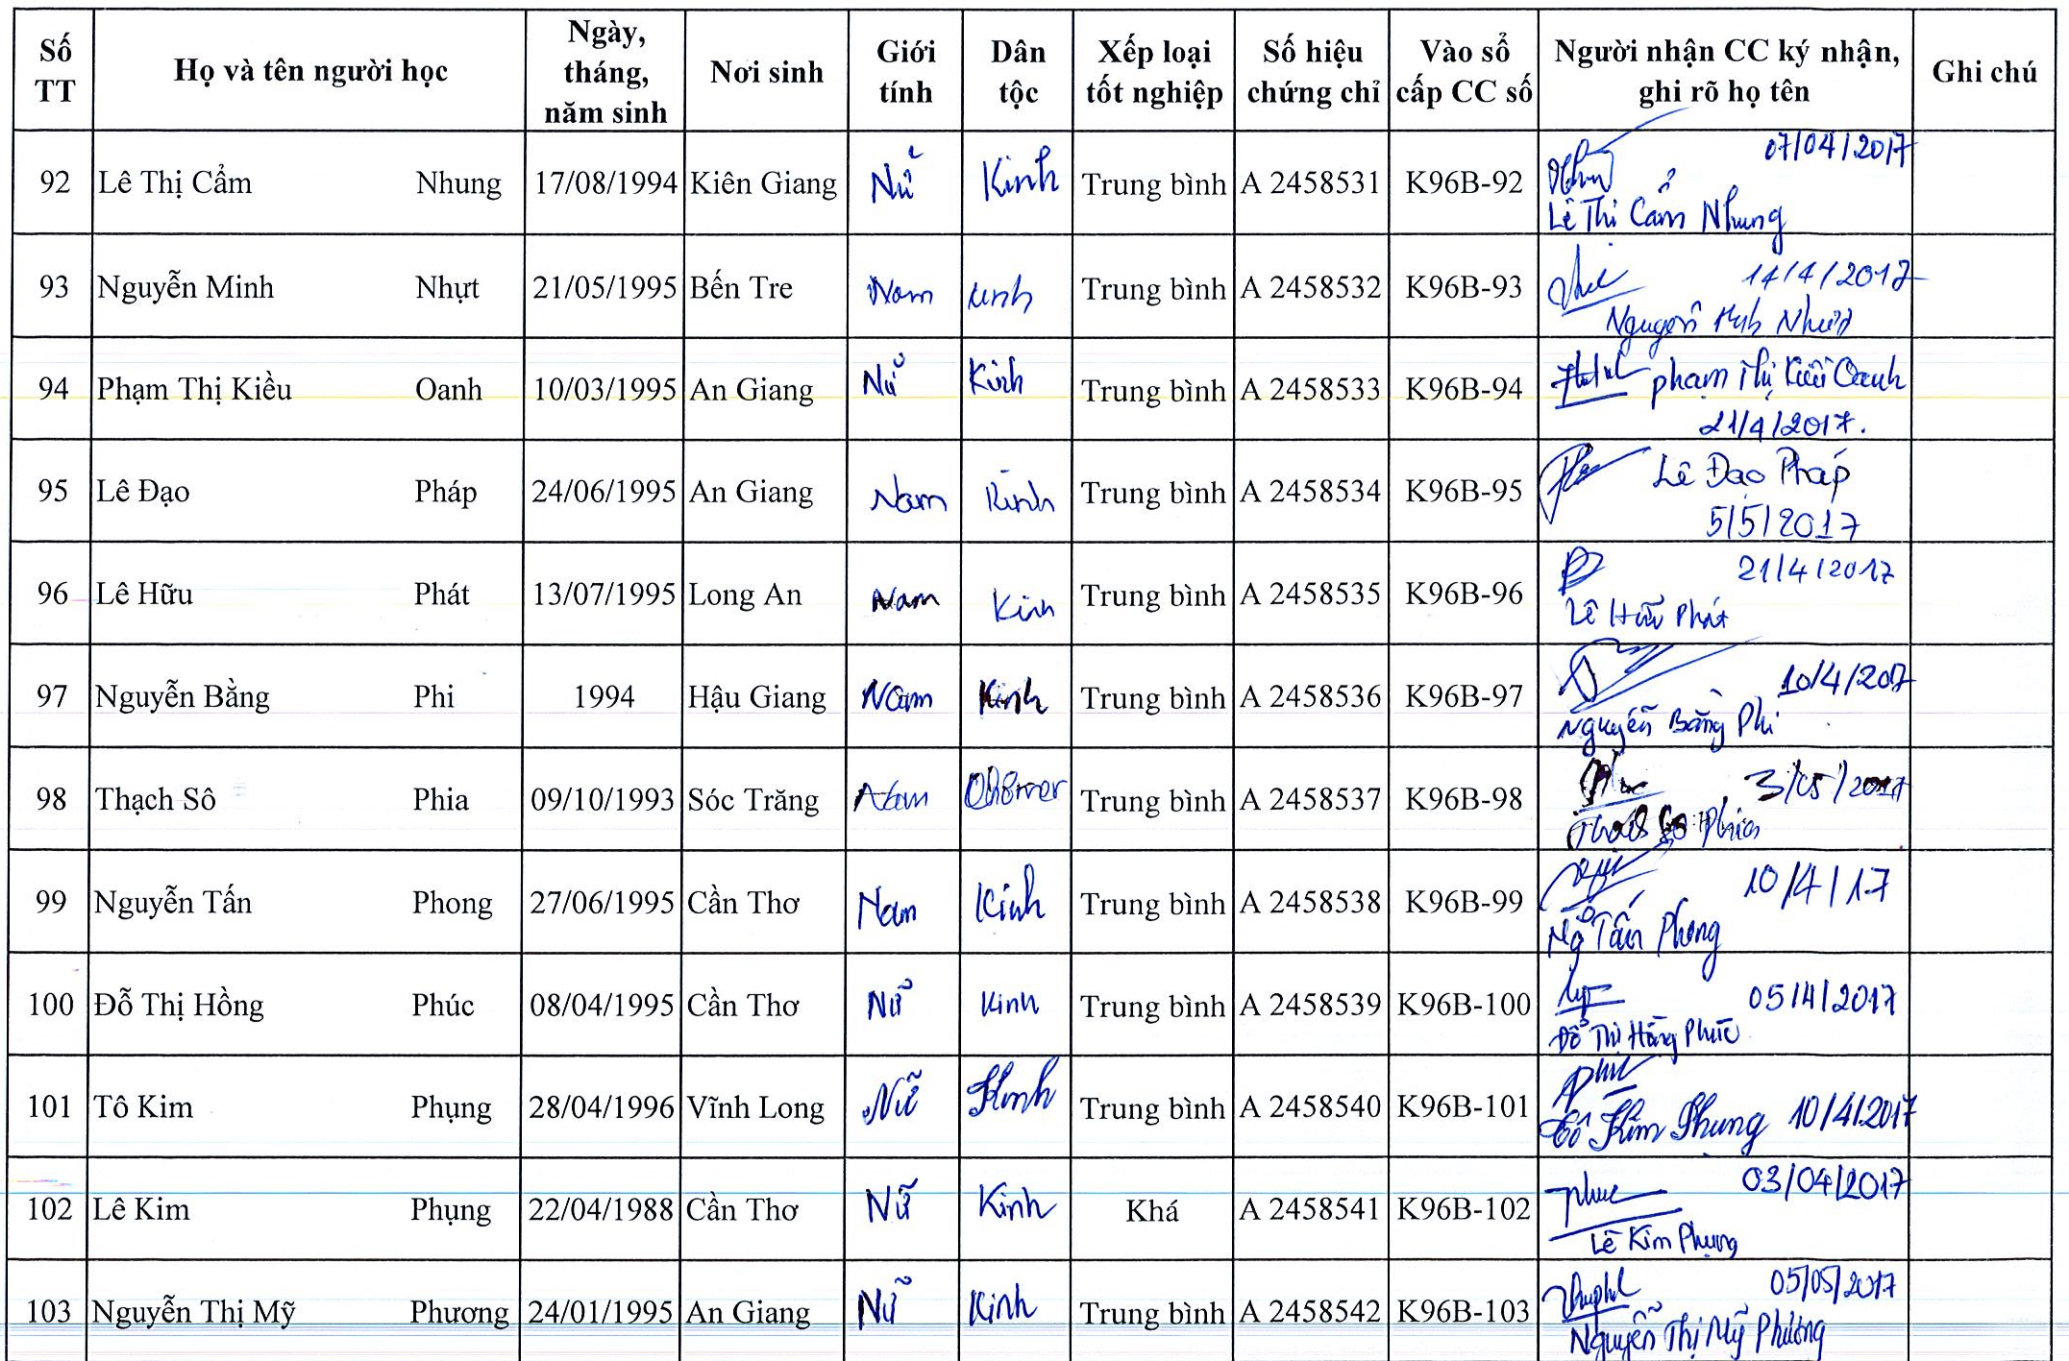 Số TT Họ và tên người học Ngày, tháng, năm sinh Nơi sinh Giới tính Dân tộc Xếp loại tốt nghiệp Số hiệu chứng chỉ Vào sổ cấp CC số Người nhận CC ký nhận, ghi rõ họ tên Ghi chú
92 Lê Thị Cẩm Nhung 17/08/1994 Kiên Giang Nữ Kinh Trung bình A 2458531 K96B-92 07/04/2017
Lê Thị Cẩm Nhung
93 Nguyễn Minh Nhựt 21/05/1995 Bến Tre Nam Kinh Trung bình A 2458532 K96B-93 14/4/2017
Nguyễn Minh Nhựt
94 Phạm Thị Kiều Oanh 10/03/1995 An Giang Nữ Kinh Trung bình A 2458533 K96B-94 Phạm Thị Kiều Oanh
21/4/2017.
95 Lê Đạo Pháp 24/06/1995 An Giang Nam Kinh Trung bình A 2458534 K96B-95 Lê Đạo Pháp
5/5/2017
96 Lê Hữu Phát 13/07/1995 Long An Nam Kinh Trung bình A 2458535 K96B-96 21/4/2017
Lê Hữu Phát
97 Nguyễn Bằng Phi 1994 Hậu Giang Nam Kinh Trung bình A 2458536 K96B-97 10/4/2017
Nguyễn Bằng Phi
98 Thạch Sô Phia 09/10/1993 Sóc Trăng Nam Khơmer Trung bình A 2458537 K96B-98 3/05/2017
Thạch Sô Phia
99 Nguyễn Tấn Phong 27/06/1995 Cần Thơ Nam Kinh Trung bình A 2458538 K96B-99 10/4/17
Ng Tấn Phong
100 Đỗ Thị Hồng Phúc 08/04/1995 Cần Thơ Nữ Kinh Trung bình A 2458539 K96B-100 05/4/2017
Đỗ Thị Hồng Phúc
101 Tô Kim Phụng 28/04/1996 Vĩnh Long Nữ Kinh Trung bình A 2458540 K96B-101
Tô Kim Phụng 10/4/2017
102 Lê Kim Phụng 22/04/1988 Cần Thơ Nữ Kinh Khá A 2458541 K96B-102 03/04/2017
Lê Kim Phụng
103 Nguyễn Thị Mỹ Phương 24/01/1995 An Giang Nữ Kinh Trung bình A 2458542 K96B-103 05/05/2017
Nguyễn Thị Mỹ Phương